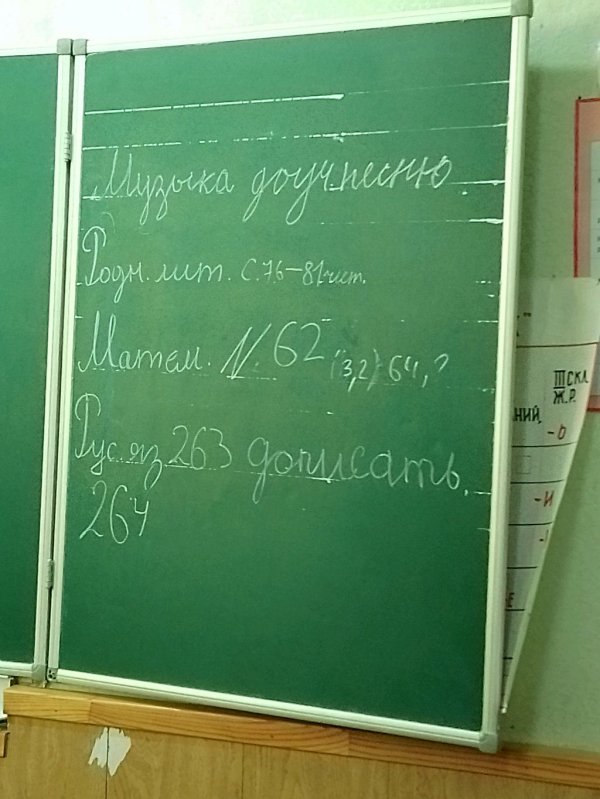 Музыка доуч.песню.
Родн. лит. с.76–81чит.
Матем. N. 62 (3,2) 64,?
Рус.яз 263 дописать,
264
III СКЛ.
Ж.Р.
-И